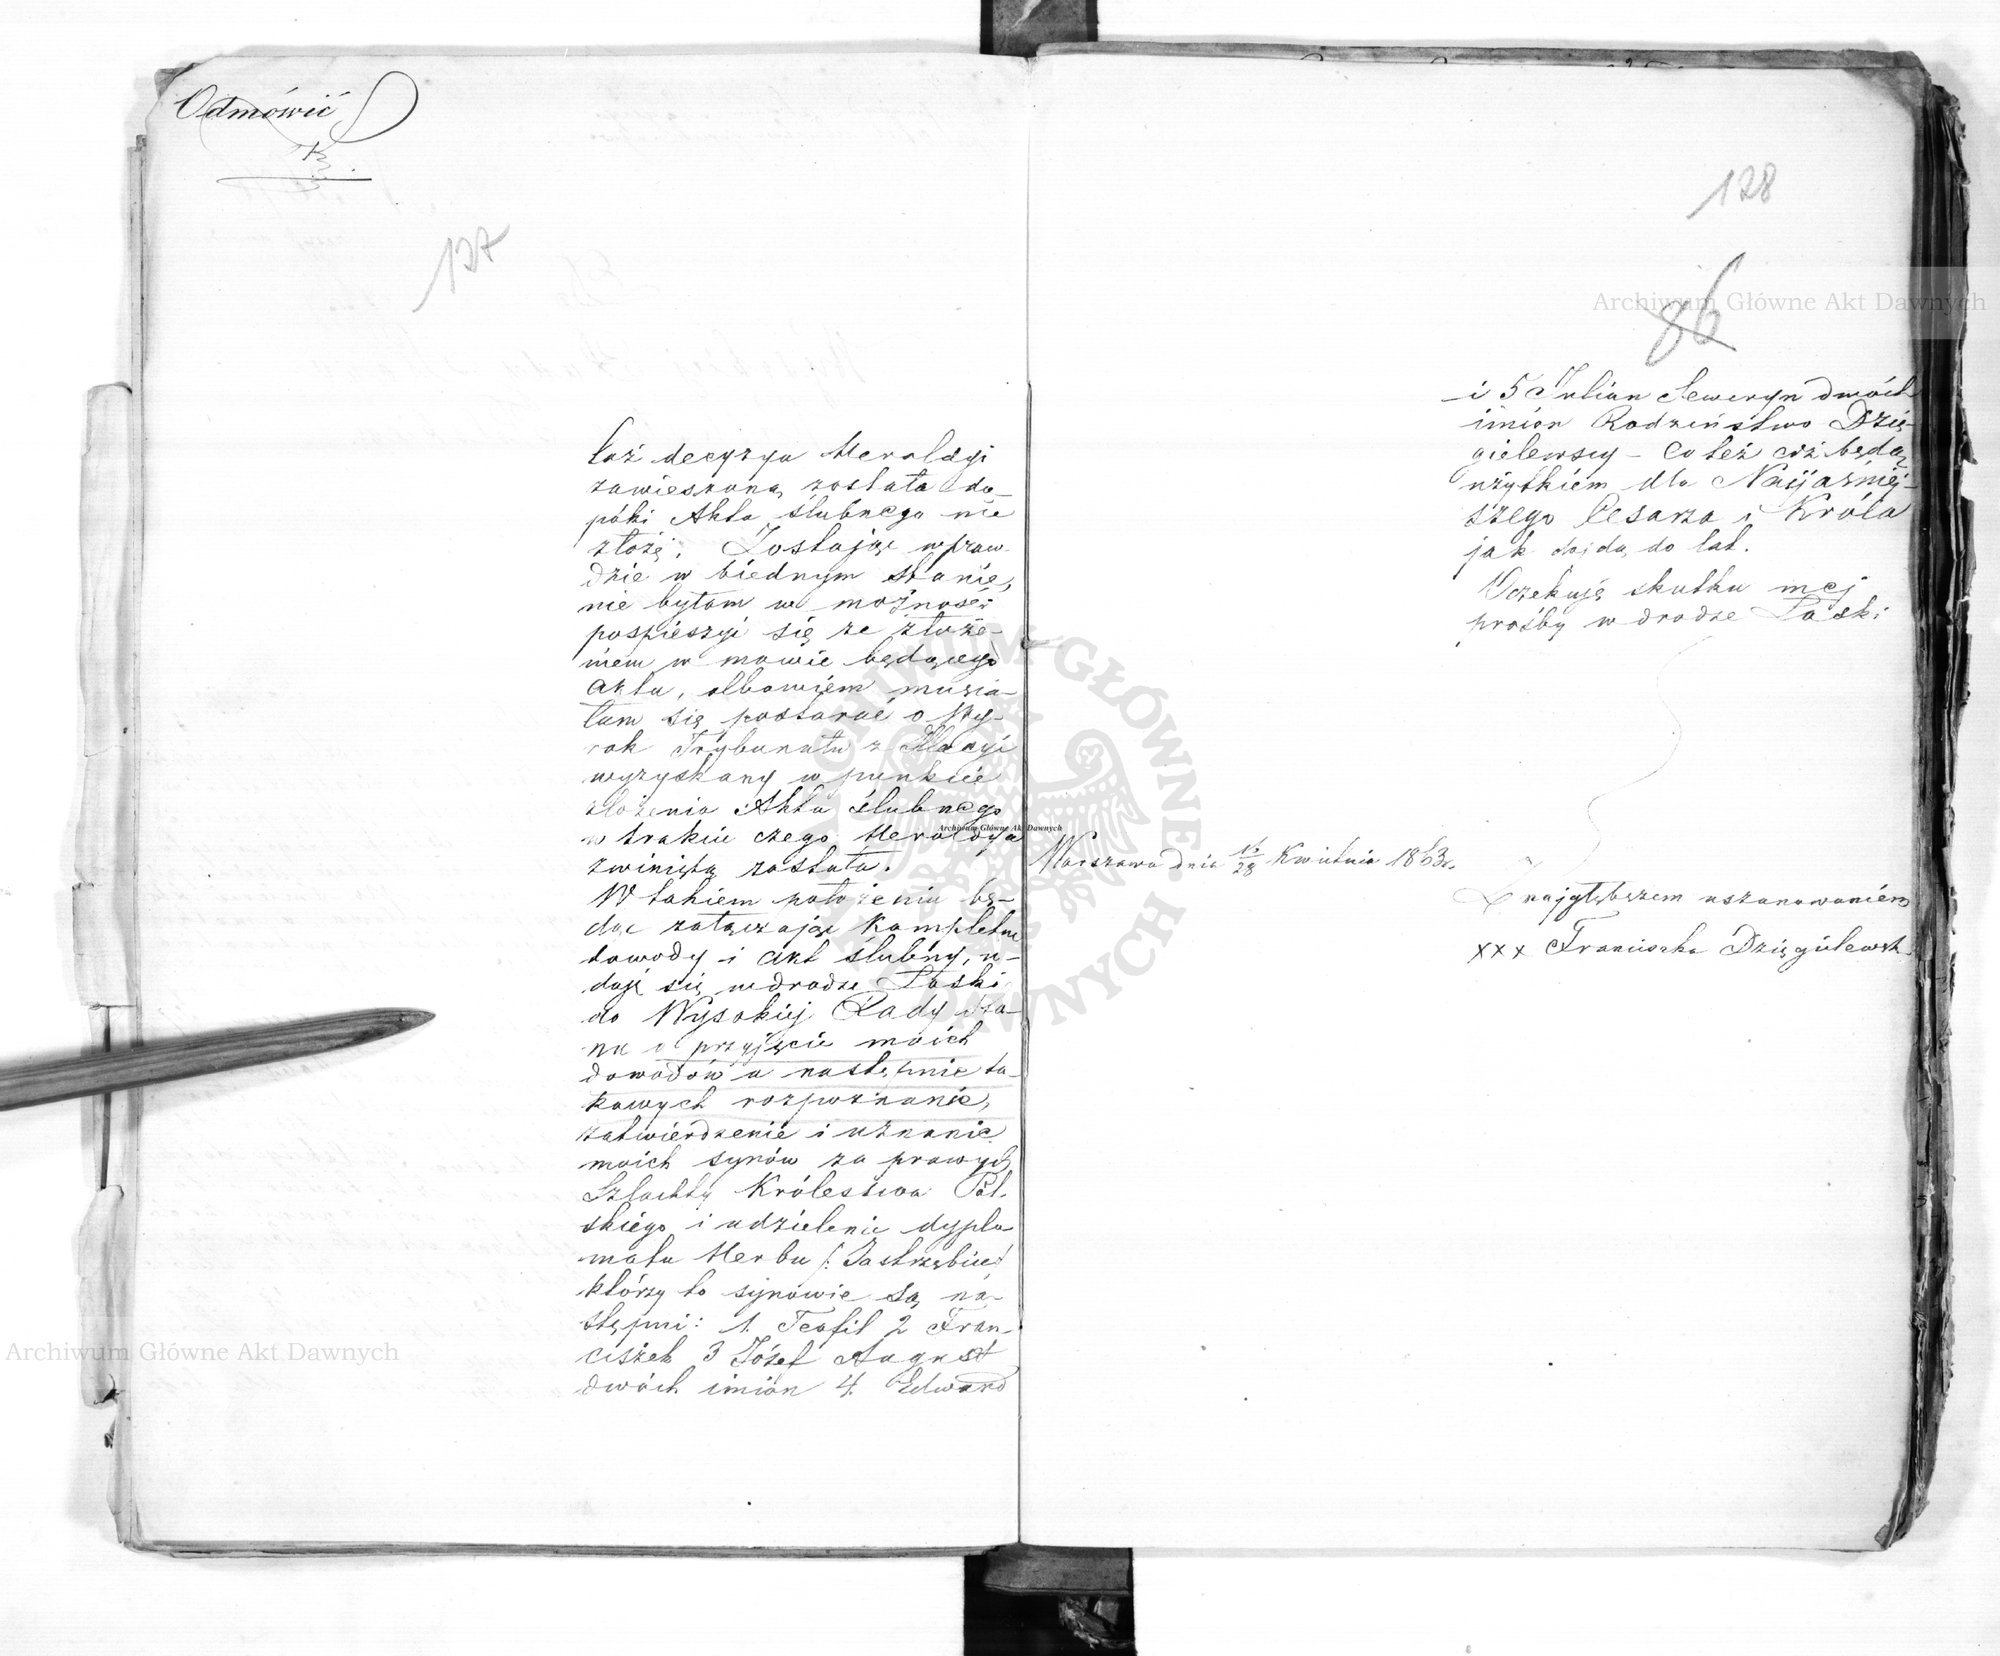 Odmówić
127
też decyzya Heraldyi
zawieszoną została do-
póki Akta ślubnego nie
złożę. Zostając wpraw-
dzie w biednym stanie,
nie byłam w możności
pospieszyć się ze złoże-
niem w mowie będącego
Akta, albowiem musia-
łam się postarać o Wy-
rok Trybunału z Illacyi
wyzyskany w punkcie
złożenia Akta ślubnego
w trakcie czego Heraldya
zwiniętą została.
W takiem położeniu bę-
dąc załączając kompletne
dowody i Akt ślubny, u-
daję się w drodze Łaski
do Wysokiej Rady Sta-
nu o przyjęcie moich
dowodów a następnie ta-
kowych rozpoznanie,
zatwierdzenie i uznanie
moich synów za prawych
Szlachtę Królestwa Pol-
skiego i udzielenie dyplo-
matu Herbu /: Jastrzębiec
którzy to synowie są na-
stępni: 1. Teofil 2 Fran-
ciszek 3 Józef August
dwóch imión 4. Edward
128
86
i 5 Julian Seweryn dwóch
imión Rodzeństwo Dzię-
gielewscy - co też ciż będą
użytkiem dla Najjaśniej-
szego Cesarza i Króla
jak dojdą do lat.
Oczekuję skutku mej
prośby w drodze Łaski
Warszawa dnia 16/28 Kwietnia 1863 r.
Z najgłębszem uszanowaniem
xxx Franciszka Dzięgielewsk
Archiwum Główne Akt Dawnych
Archiwum Główne Akt Dawnych
Archiwum Główne Akt Dawnych
ARCHIWUM GŁÓWNE AKT DAWNYCH